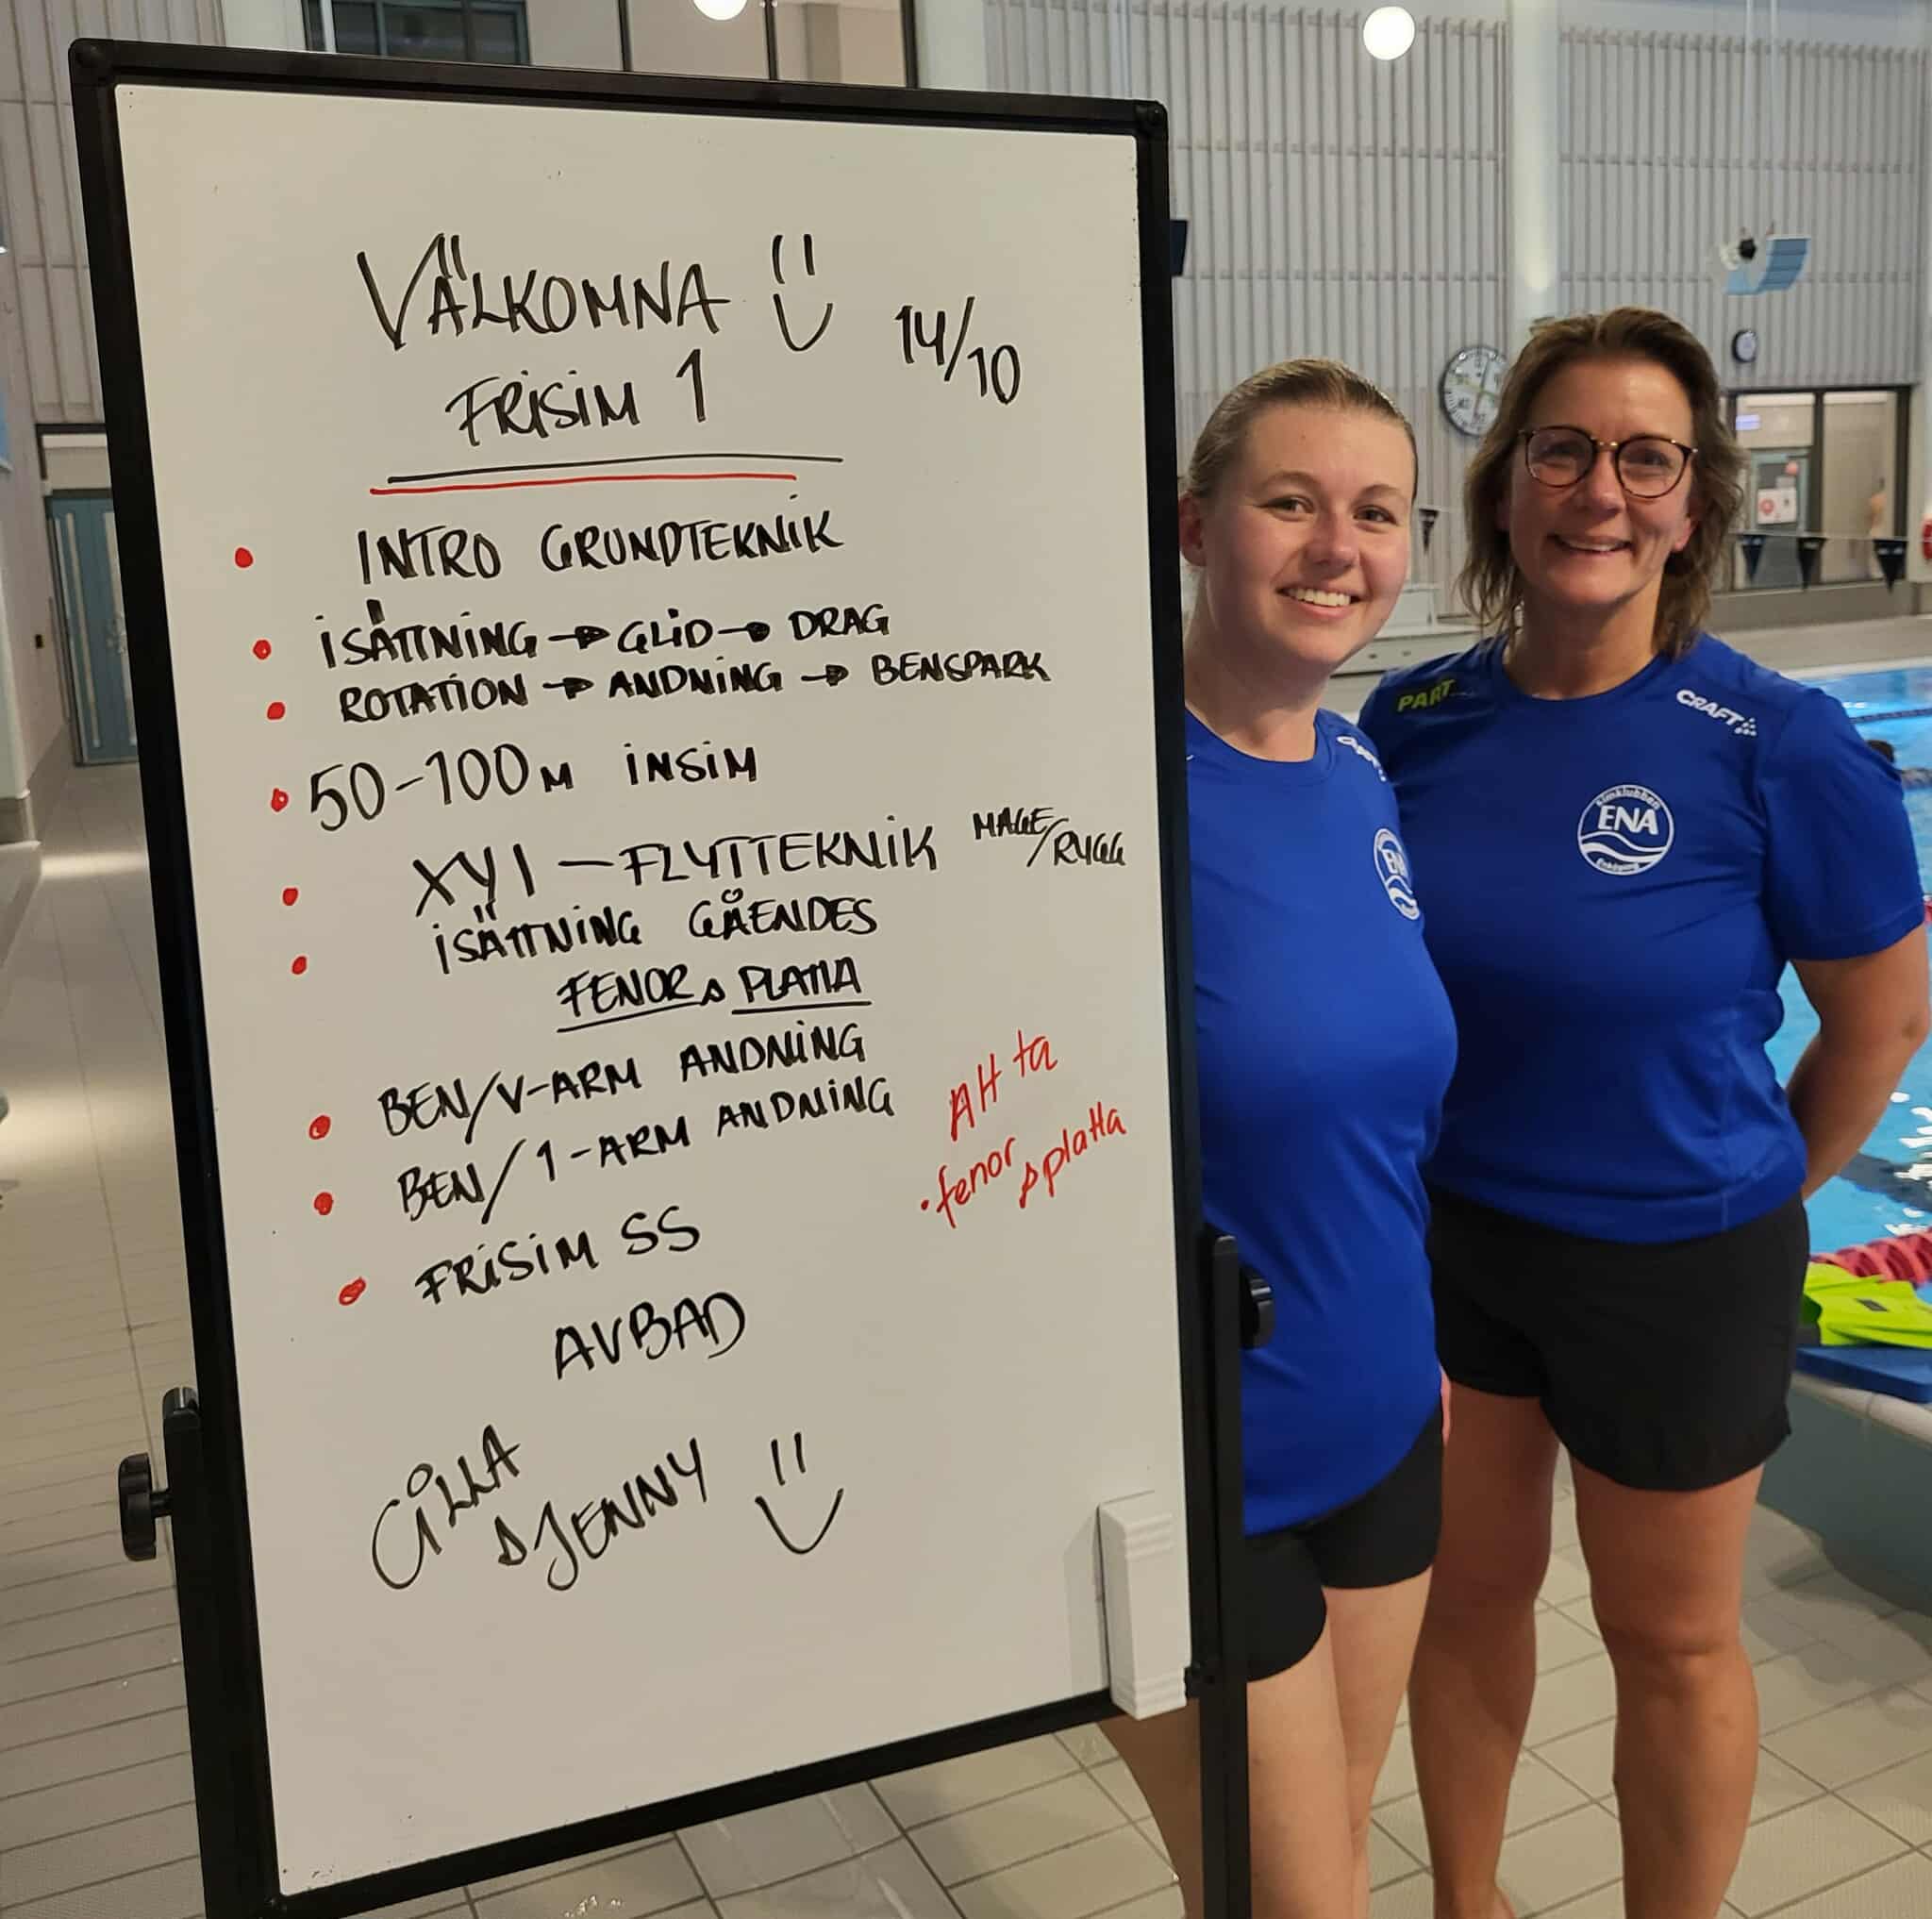 VÄLKOMNA
14/10
FRISIM 1
• INTRO GRUNDTEKNIK
• ISÄTTNING → GLID → DRAG
• ROTATION → ANDNING → BENSPARK
• 50-100M INSIM
• XYI – FLYTTEKNIK MAGE/RYGG
• ISÄTTNING GÅENDES
FENOR & PLATTA
• BEN/V-ARM ANDNING
• BEN/1-ARM ANDNING
• FRISIM SS
AVBAD
Att ta
• fenor & platta
CILLA
& JENNY
PART
CRAFT
Simklubben
ENA
Enköping